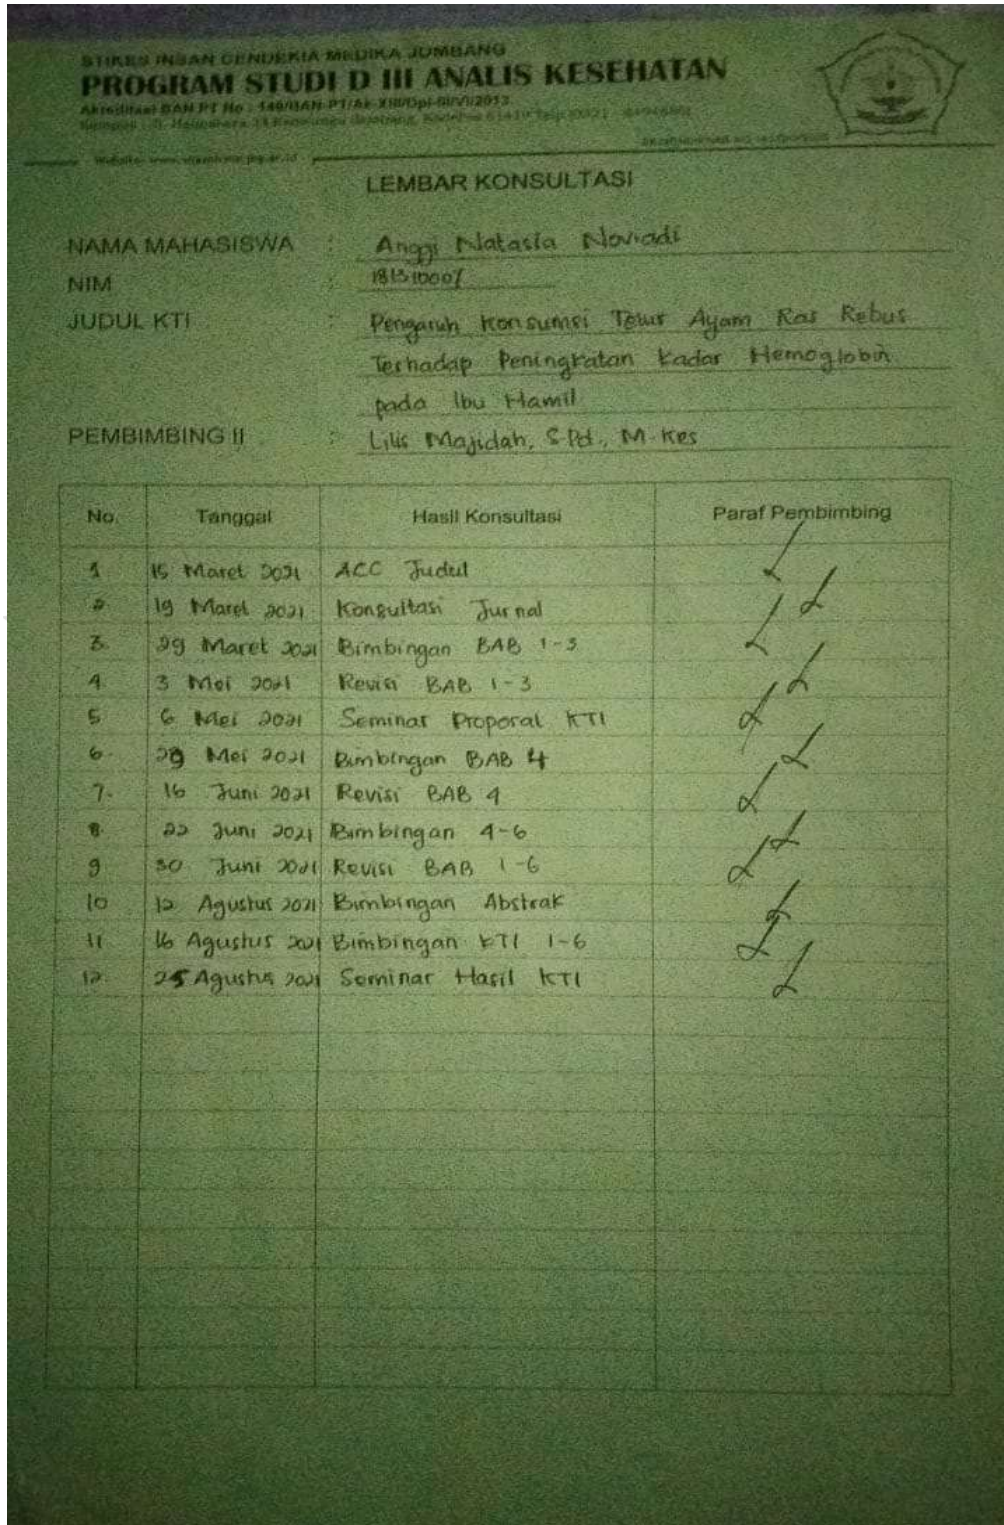 STIKES INSAN CENDEKIA MEDIKA JOMBANG
PROGRAM STUDI D III ANALIS KESEHATAN
Akreditasi BAN PT No : 140/BAN-PT/Ak-XIII/Dpl-III/VI/2013
LEMBAR KONSULTASI
NAMA MAHASISWA : Anggi Natasia Noviadi
NIM :
JUDUL KTI : Pengaruh Konsumsi Telur Ayam Ras Rebus
Terhadap Peningkatan Kadar Hemoglobin
pada Ibu Hamil
PEMBIMBING II : Lilis Majidah, S.Pd., M.Kes
No. Tanggal Hasil Konsultasi Paraf Pembimbing
1 15 Maret 2021 ACC Judul
2 19 Maret 2021 Konsultasi Jurnal
3. 29 Maret 2021 Bimbingan BAB 1-3
4. 3 Mei 2021 Revisi BAB 1-3
5 6 Mei 2021 Seminar Proposal KTI
6. 29 Mei 2021 Bimbingan BAB 4
7. 16 Juni 2021 Revisi BAB 4
8. 22 Juni 2021 Bimbingan 4-6
9 30 Juni 2021 Revisi BAB 1-6
10 12 Agustus 2021 Bimbingan Abstrak
11 16 Agustus 2021 Bimbingan KTI 1-6
12. 25 Agustus 2021 Seminar Hasil KTI